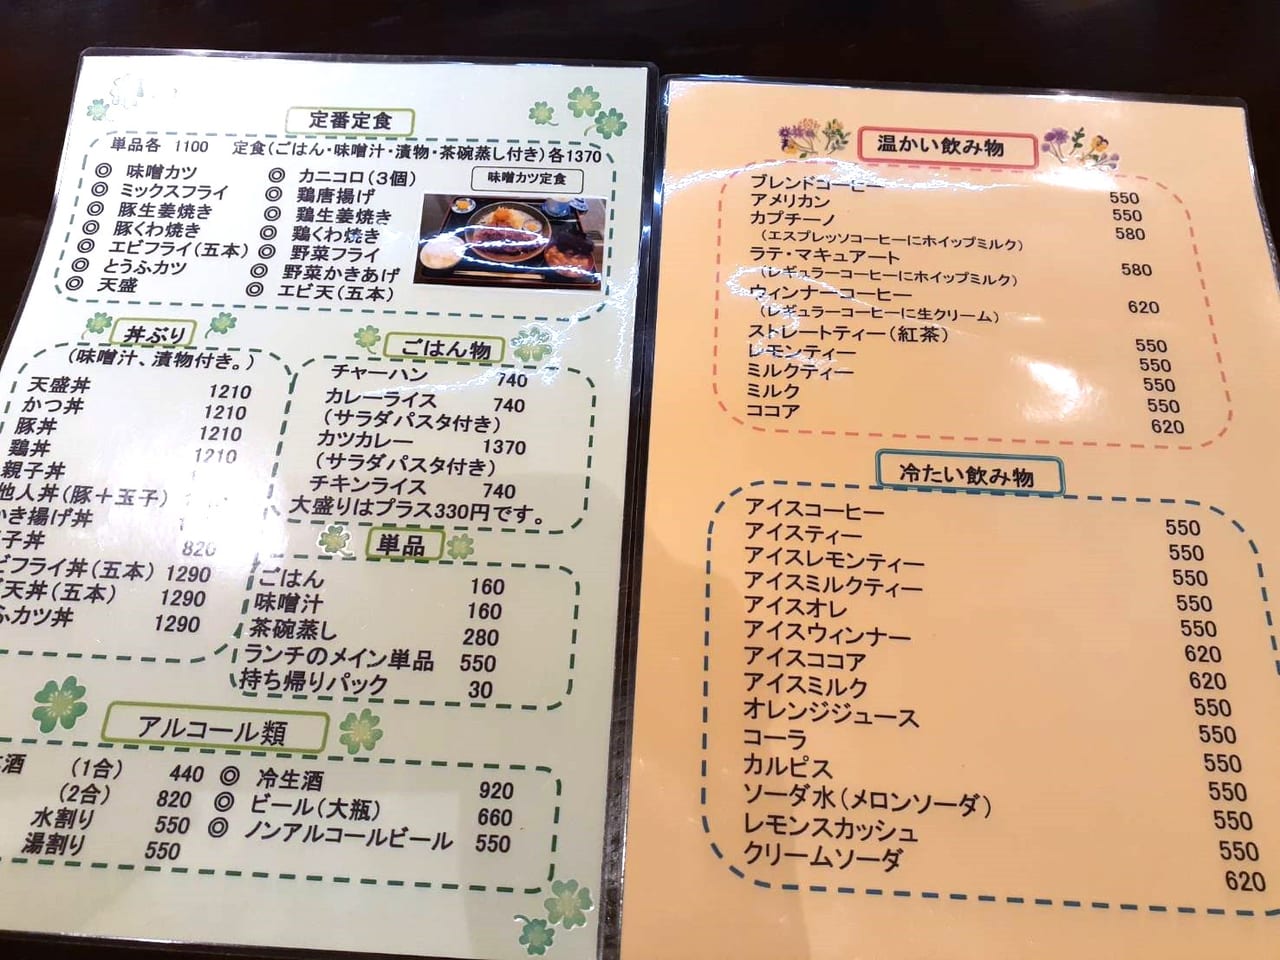 定番定食
単品各 1100 定食(ごはん・味噌汁・漬物・茶碗蒸し付き)各1370
◎ 味噌カツ
◎ ミックスフライ
◎ 豚生姜焼き
◎ 豚くわ焼き
◎ エビフライ(五本)
◎ とうふカツ
◎ 天盛
◎ カニコロ(3個)
◎ 鶏唐揚げ
◎ 鶏生姜焼き
◎ 鶏くわ焼き
◎ 野菜フライ
◎ 野菜かきあげ
◎ エビ天(五本)
味噌カツ定食
丼ぶり
(味噌汁、漬物付き。)
天盛丼 1210
かつ丼 1210
豚丼 1210
鶏丼 1210
親子丼
他人丼(豚+玉子)
かき揚げ丼
子丼 820
ビフライ丼(五本) 1290
天丼(五本) 1290
ふカツ丼 1290
ごはん物
チャーハン 740
カレーライス 740
(サラダパスタ付き)
カツカレー 1370
(サラダパスタ付き)
チキンライス 740
大盛りはプラス330円です。
単品
ごはん 160
味噌汁 160
茶碗蒸し 280
ランチのメイン単品 550
持ち帰りパック 30
アルコール類
酒 (1合) 440
(2合) 820
水割り 550
湯割り 550
◎ 冷生酒 920
◎ ビール(大瓶) 660
◎ ノンアルコールビール 550
温かい飲み物
ブレンドコーヒー 550
アメリカン 550
カプチーノ 580
(エスプレッソコーヒーにホイップミルク)
ラテ・マキュアート 580
(レギュラーコーヒーにホイップミルク)
ウィンナーコーヒー 620
(レギュラーコーヒーに生クリーム)
ストレートティー(紅茶) 550
レモンティー 550
ミルクティー 550
ミルク 550
ココア 620
冷たい飲み物
アイスコーヒー 550
アイスティー 550
アイスレモンティー 550
アイスミルクティー 550
アイスオレ 550
アイスウィンナー 620
アイスココア 620
アイスミルク 550
オレンジジュース 550
コーラ 550
カルピス 550
ソーダ水(メロンソーダ) 550
レモンスカッシュ 550
クリームソーダ 620